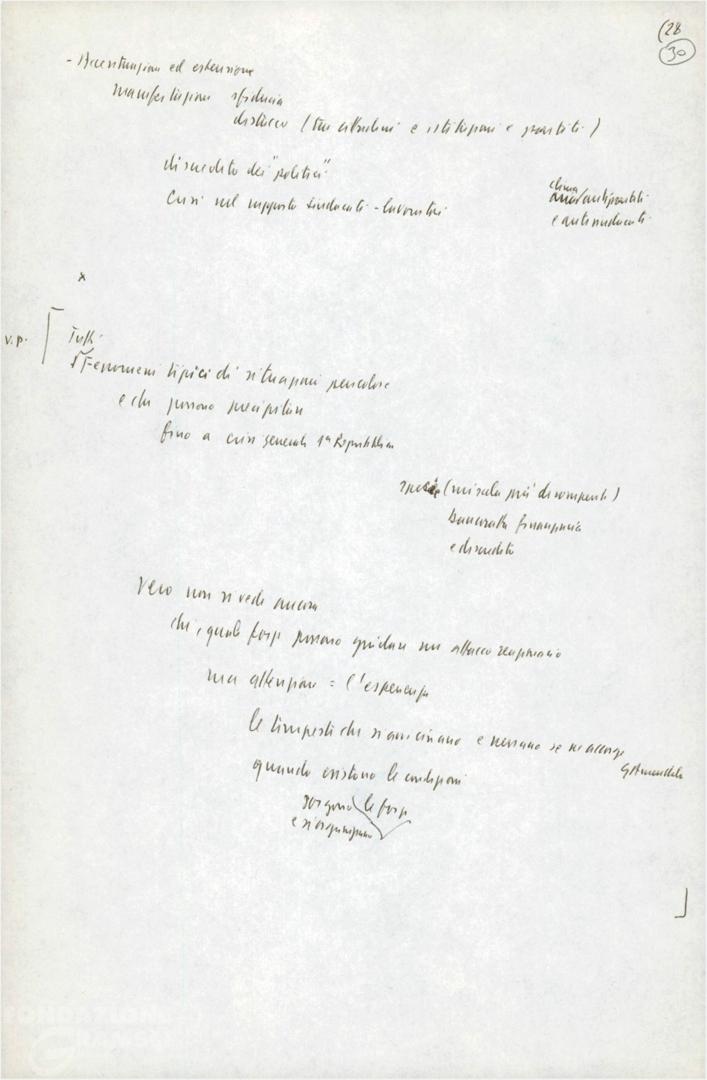 (28
30
- Accentuazione ed estensione
manifestazione sfiducia
distacco (tra cittadini e istituzioni e partiti)
discredito dei "politici"
Crisi nel rapporto sindacati - lavoratori
clima
antipartiti
e antisindacati
x
V.P.
Tutti
Fenomeni tipici di situazioni pericolose
e che possono precipitare
fino a crisi generale 1ª Repubblica
specie (miscela più dirompente)
Bancarotta finanziaria
e discredito
Vero non si vede ancora
chi, quali forze possono guidare un attacco reazionario
ma attenzione = l'esperienza
le tempeste che si avvicinano e nessuno se ne accorge
G. Amendola
quando esistono le condizioni
sorgono le forze
e si organizzano
FONDAZIONE
GRAMSCI